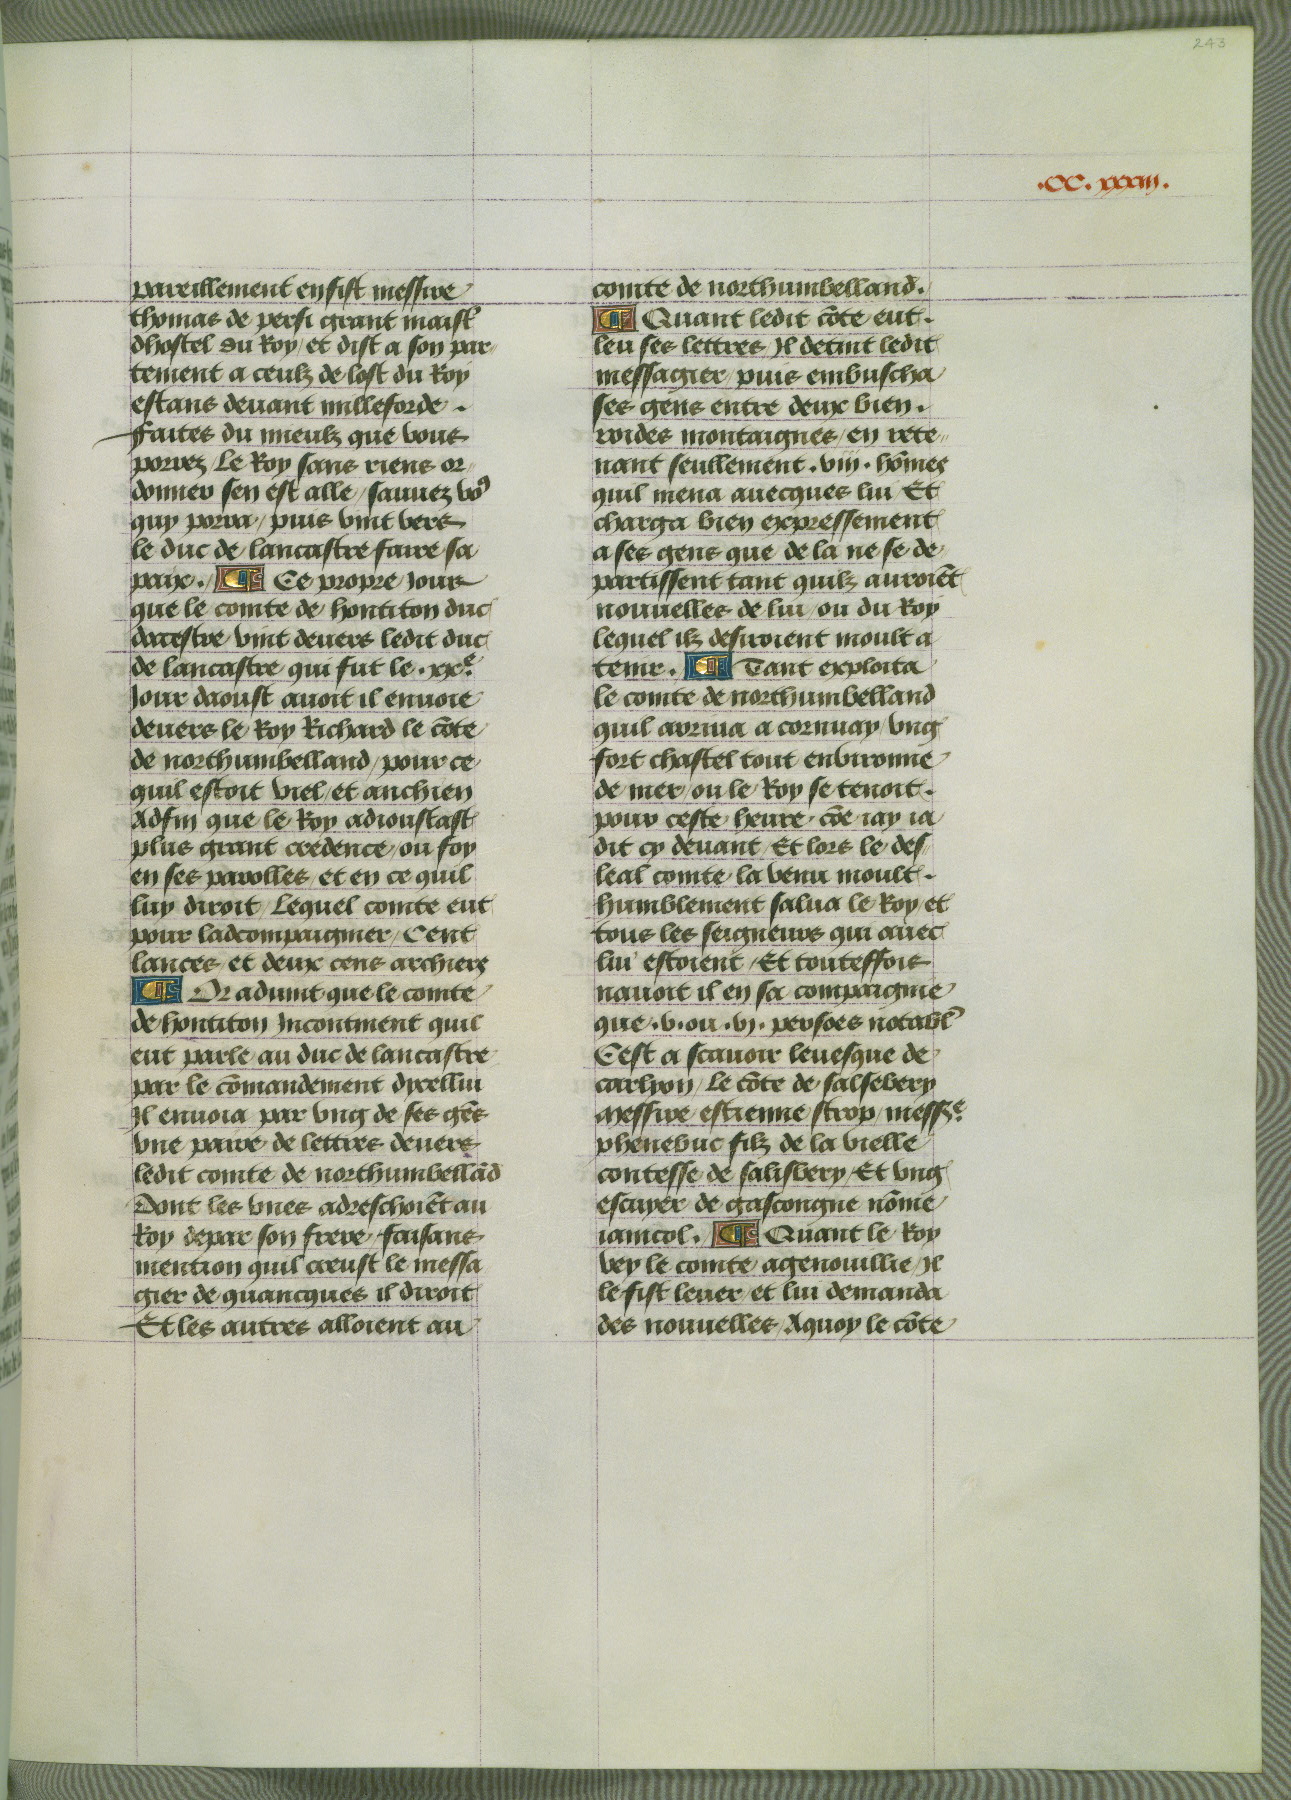 243
.CC. xxxiij.
pareillement en fist messire
thomas de persi grant maistr̃
dhostel du Roy / et dist a son par-
tement a ceulz de lost du Roy
estans deuant milleforde .
faites du mieulz que vous
porrez / Le Roy sans riens or-
donner sen est alle / sauuez vo9
quy porra / puis vint vers
le duc de lancastre faire sa
paix . ¶ Ce propre Jour
que le comte de hontiton duc
dacestre vint deuers ledit duc
de lancastre qui fut le . xxe.
Jour daoust auoit il enuoie
deuers le Roy Richard le cõte
de northumbelland / pour ce
quil estoit viel / et anchien
Adfin que le Roy adioustast
plus grant credence / ou foy
en ses parolles / et en ce quil
luy diroit / Lequel comte eut
pour ladcompaignier / Cent
lances / et deux cens archiers
¶ Or aduint que le comte
de hontiton Incontinent quil
eut parle au duc de lancastre
par le cõmandement dycellui
Il enuoia par vng de ses gẽs
vne paire de lettres deuers
ledit comte de northumbellãd
Dont les vnes adreschoiẽt au
Roy depar son frere / faisans
mention quil creust le messa
gier de quancques il diroit
Et les autres alloient au
comte de northumbelland .
¶ Quant ledit cõte eut .
leu ses lettres Il detint ledit
messagier / puis embuscha
ses gens entre deux bien .
roides montaignes / en rete-
nant seullement . viij . hõmes
quil mena auecques lui Et
charga bien expressement
a ses gens que de la ne se de-
partissent tant quilz auroiẽt
nouuelles de lui / ou du Roy
lequel ilz desiroient moult a
tenir . ¶ Tant exploita
le comte de northumbelland
quil arriua a cornuay vng
fort chastel tout enuironne
de mer / ou le Roy se tenoit .
pour ceste heure / cõe iay ia
dit cy deuant / Et lors le des-
leal comte la venu moult .
humblement salua le Roy / et
tous les seigneurs qui auec
lui estoient / Et touteffois
nauoit il en sa compaignie
que . v . ou . vj . persões notabl̃
Cest a scauoir leuesque de
carlyon / Le cõte de salsebery
Messire estienne strop / messre
phenebuc filz de la vielle
contesse de salisbery / Et vng
escuyer de gascongne nõme
iamcol . ¶ Quant le Roy
vey le comte agenouillie / Il
le fist leuer / et lui demanda
des nouuelles / Aquoy le cõte